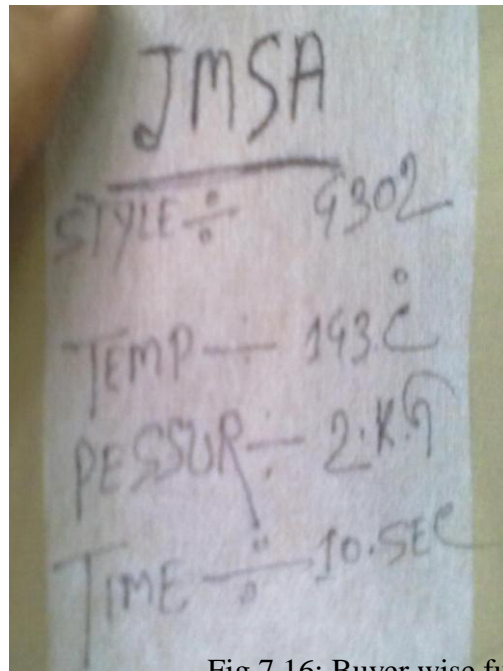 JMSA
STYLE ÷ 9302
TEMP ÷ 193.°C
PESSUR ÷ 2.K.G
TIME ÷ 10.SEC
Fig 7.16: Buyer wise fu